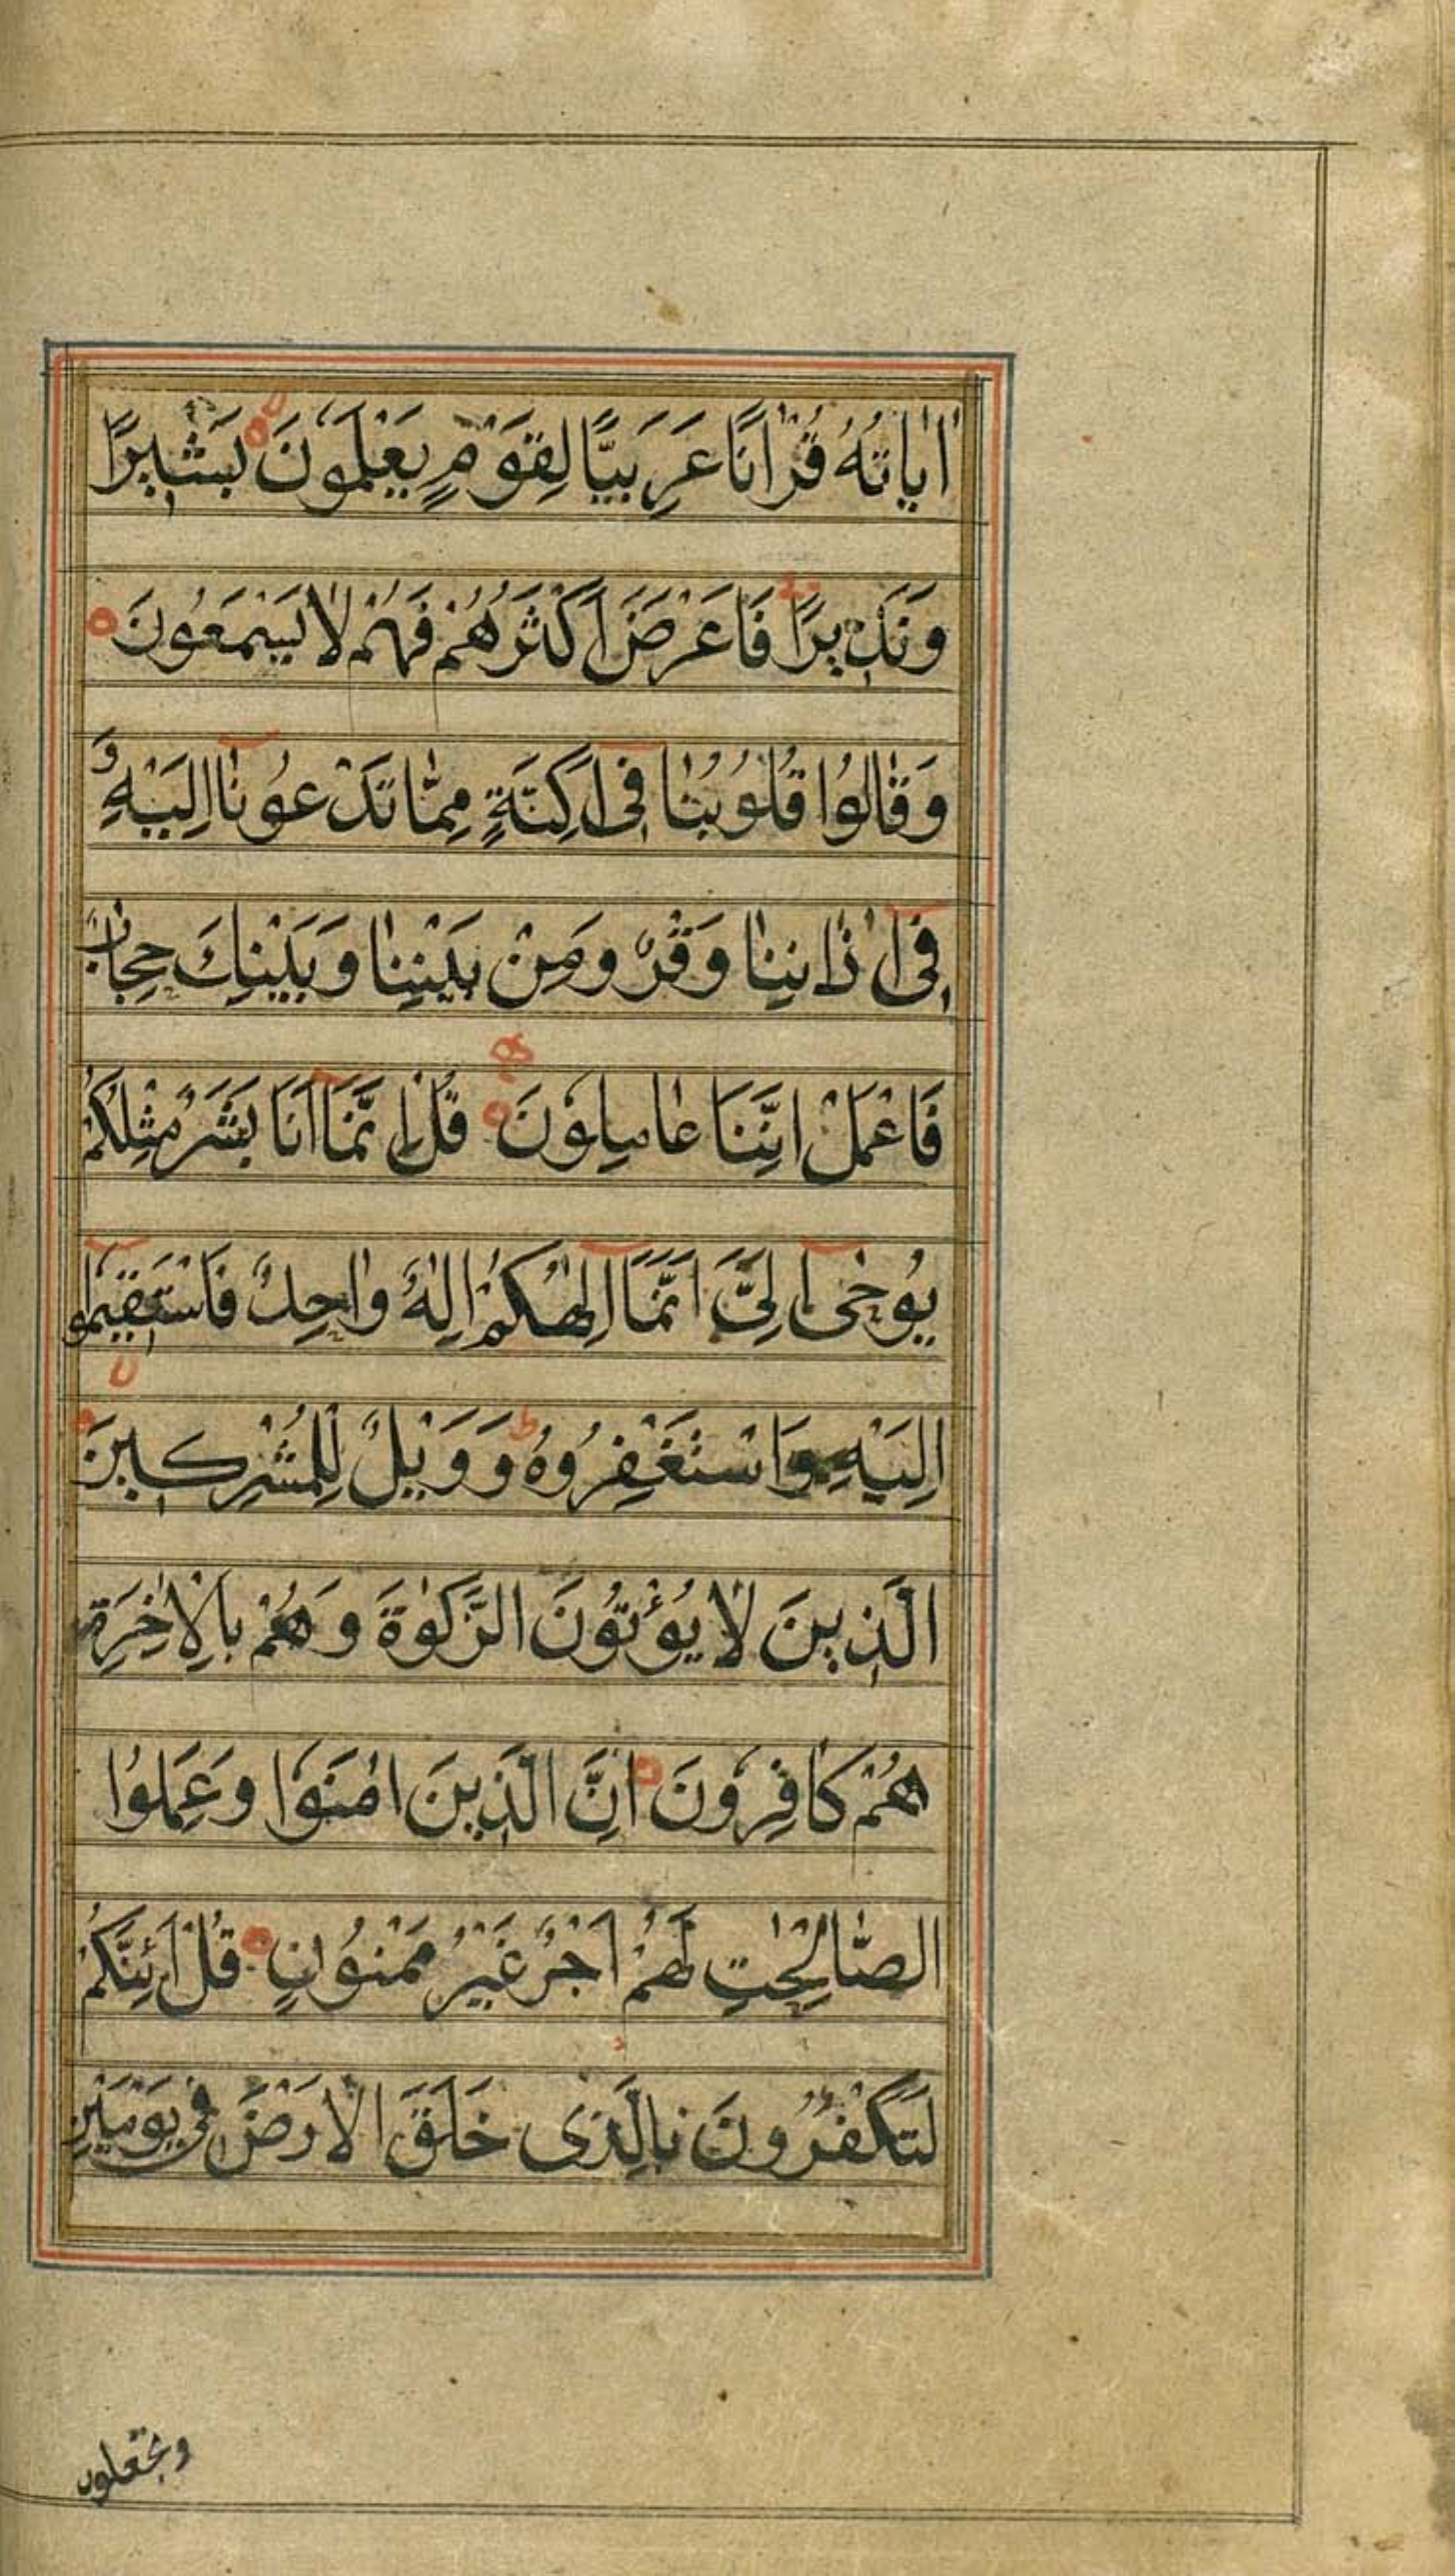 اٰیاتُهُ قُرْاٰنًا عَرَبِیًّا لِقَوْمٍ یَعْلَمُونَ بَشٖیرًا
وَنَذٖیرًا فَاَعْرَضَ اَكْثَرُهُمْ فَهُمْ لٰا یَسْمَعُونَ
وَقٰالُوا قُلُوبُنٰا فٖی اَكِنَّةٍ مِمّٰا تَدْعُونٰا اِلَیْهِ وَ
فٖی اٰذٰانِنٰا وَقْرٌ وَمِنْ بَیْنِنٰا وَبَیْنِكَ حِجٰابٌ
فَاعْمَلْ اِنَّنَا عٰامِلُونَ قُلْ اِنَّمَا اَنَا بَشَرٌ مِثْلُكُمْ
یُوحٰی اِلَیَّ اَنَّمَا اِلٰهُكُمْ اِلٰهٌ وٰاحِدٌ فَاسْتَقٖیمُوا
اِلَیْهِ وَاسْتَغْفِرُوهُ وَوَیْلٌ لِلْمُشْرِكٖینَ
الَّذٖینَ لٰا یُؤْتُونَ الزَّكٰوةَ وَهُمْ بِالْاٰخِرَةِ
هُمْ كٰافِرُونَ اِنَّ الَّذٖینَ اٰمَنُوا وَعَمِلُوا
الصّٰالِحٰتِ لَهُمْ اَجْرٌ غَیْرُ مَمْنُونٍ قُلْ اَئِنَّكُمْ
لَتَكْفُرُونَ بِالَّذٖی خَلَقَ الْاَرْضَ فٖی یَوْمَیْنِ
وتجعلون